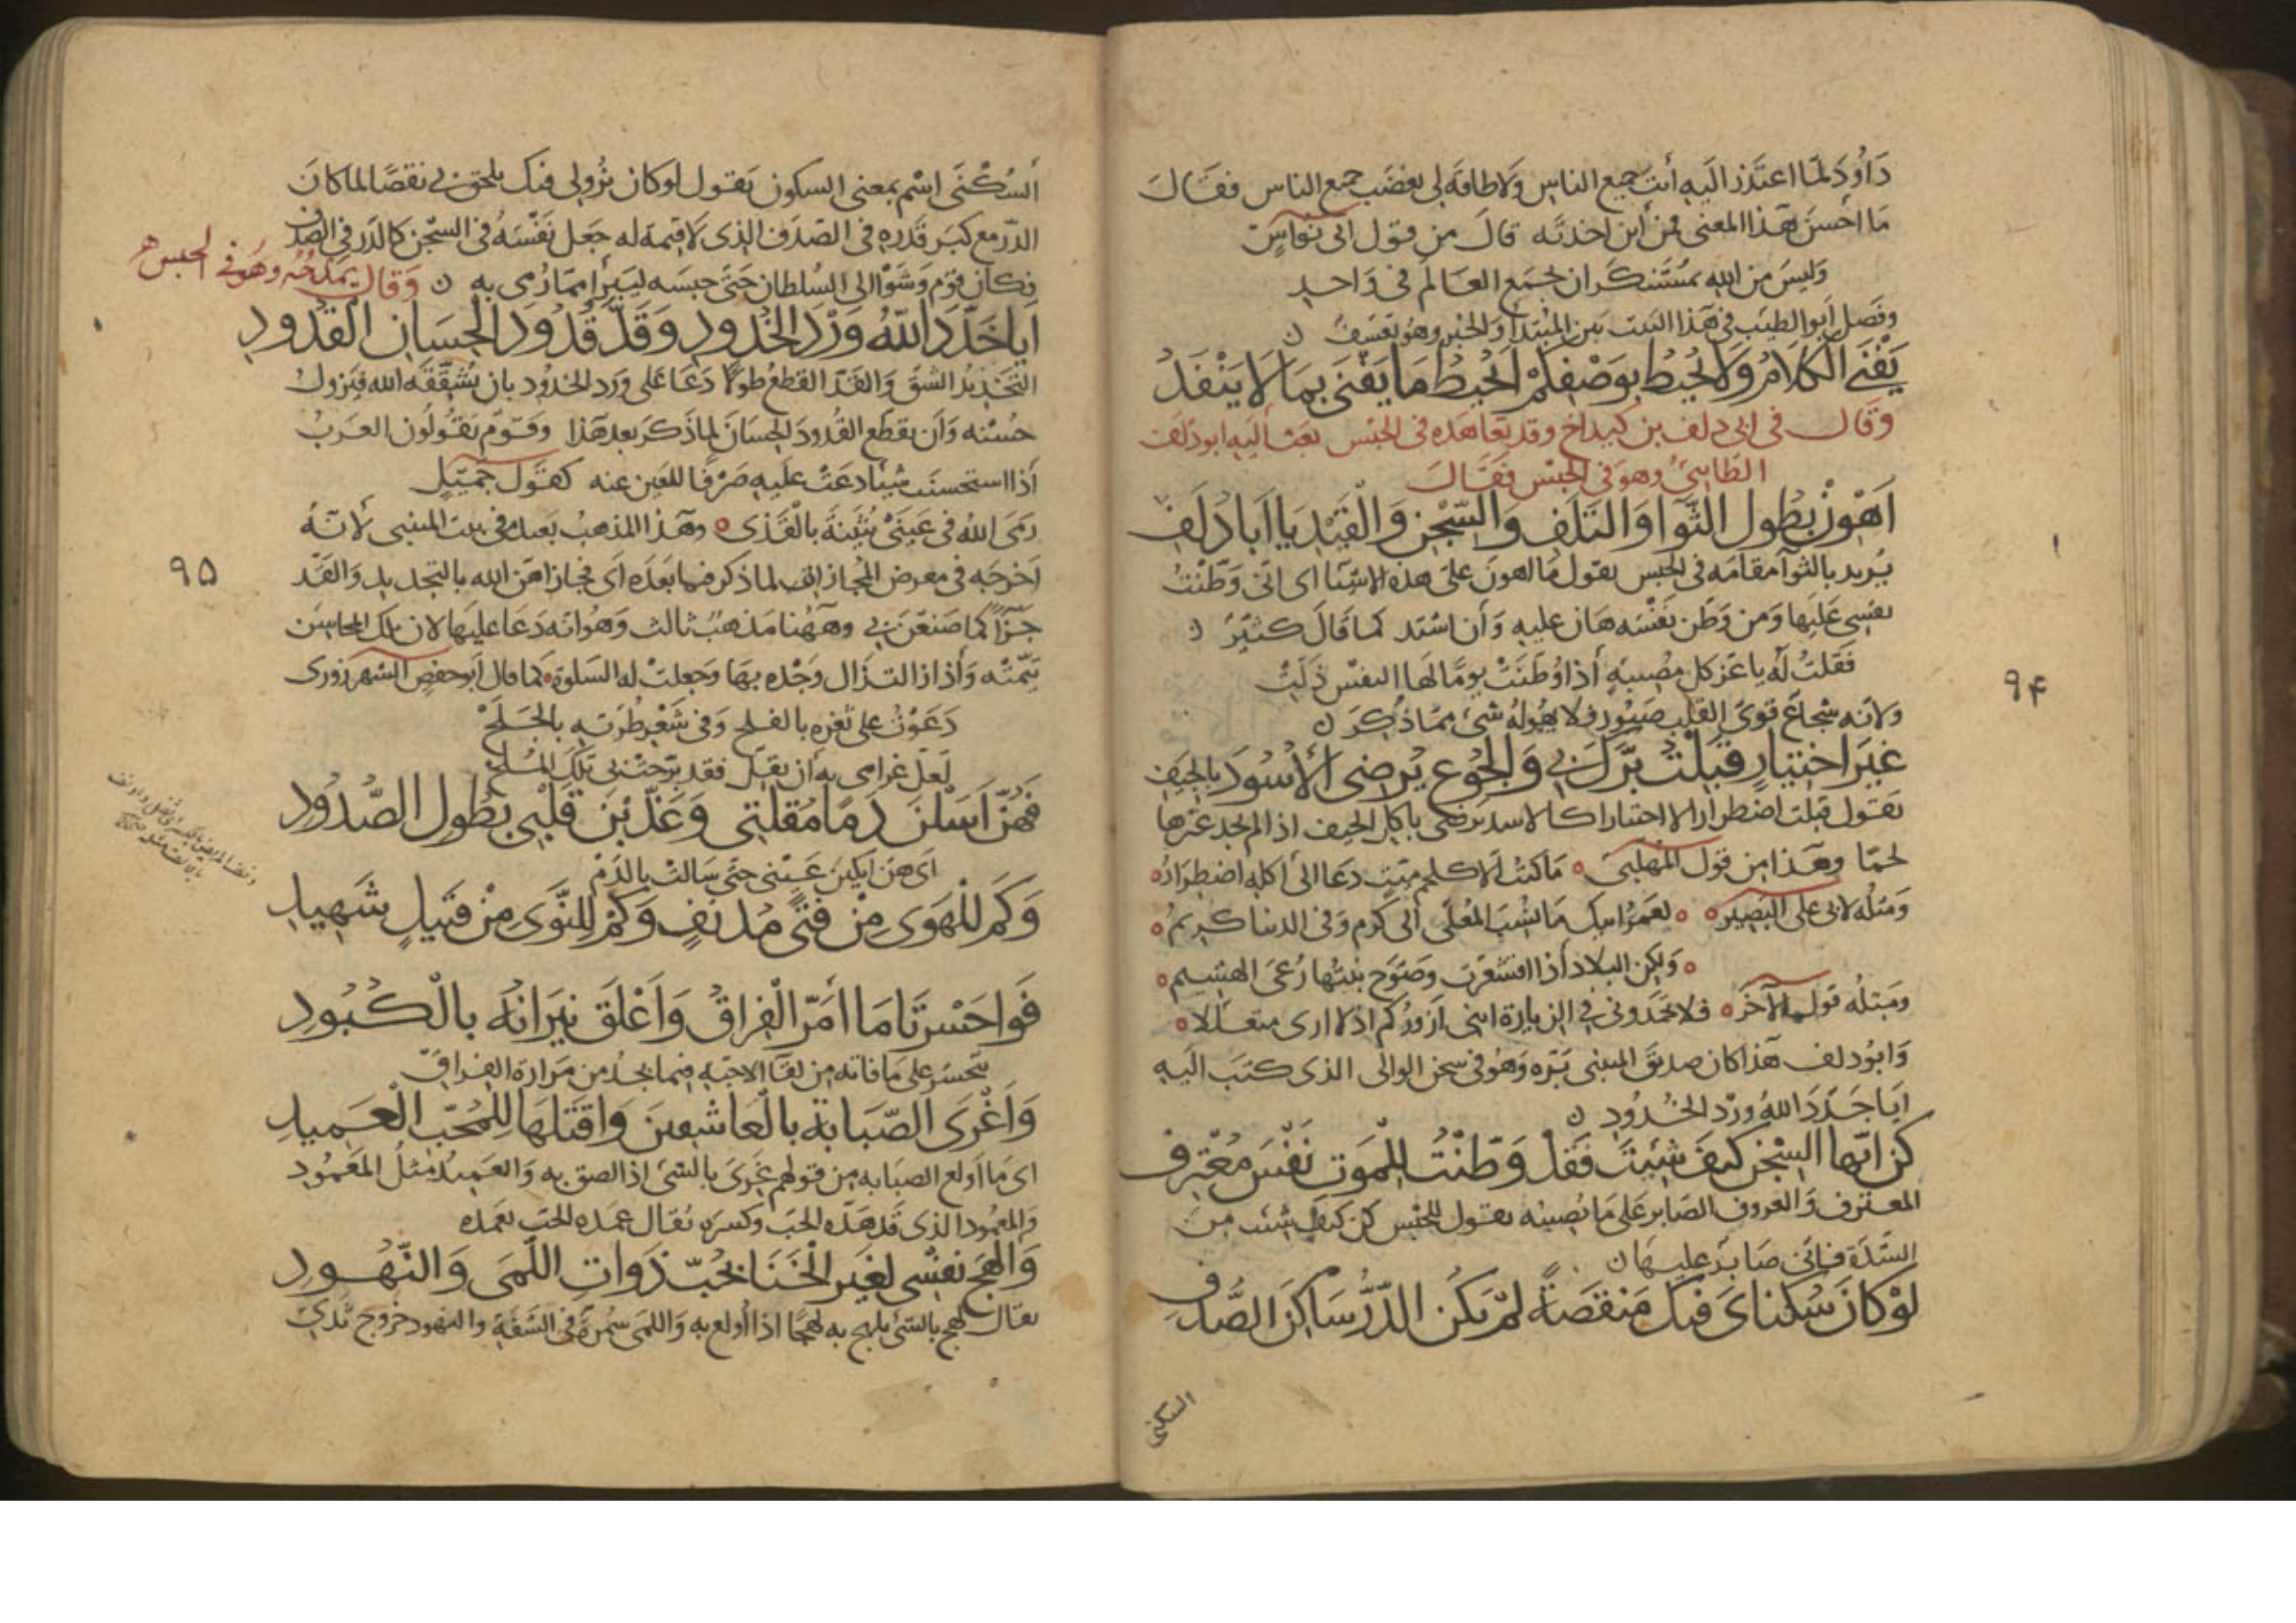 دَاوُد لمّا اعتذر اليه أنت جميع الناس ولا طاقة لى بغضب جميع الناس فقال
ما احسن هذا المعنى فمن أين اخذته قال من قول ابى نواس
وليس من الله بمستنكر ان يجمع العالم فى واحد
وفصل أبو الطيب فى هذا البيت بين المبتدا والخبر وهو تعسف
يَفْنَى الكلامُ ولا يُحيط بوصفكمْ أيُحيطُ مَا يَفْنَى بِمَا لا يَنْفَدُ
وقال فى ابى دلف بن كنداخ وقد تعاهده فى الحبس بعث اليه ابو دلف
الطائى وهو فى الحبس فقال
أَهْوِنْ بِطُول الثَّواء والتَّلَف والسِّجْن والْقَيْد يا أبا دُلَفِ
يُريد بالثواء مقامه فى الحبس يقول ما اهون على هذه الاشيا اى انى وطّنت
نفسى عليها ومن وطن نفسه هان عليه وأن اشتد كما قال كثيّر
فقلت له يا عز كل مصيبة أذا وُطّنَتْ يومًا لها النفس ذلت
ولانه شجاع قوى القلب صبور فلا يهوله شىء مما ذكر
غيرَ اختيارٍ قبلتُ برَّك بى والجوع يُرضى الأسُودَ بالجيَف
يقول قبلت اضطرارا لا اختيارا كالاسد يرضى باكل الجيف اذا لم يجد غيرها
لحمًا وهذا من قول المهلبى ما كنت الا كلحم ميت دعا الى اكله اضطرار
ومثله لابى على البصير لعمر ابيك ما نُسب المعلى الى كرم وفى الدنيا كريم
ولكن البلاد أذا اقشعرت وصوّح نبتها رُعى الهشيم
ومثله قول الآخر فلا تحمدونى فى الزيارة اننى ازوركم اذ لا ارى متعللا
وابو دلف هذا كان صديق المتنبى بره وهو فى سجن الوالى الذى كتب اليه
ايا خدد الله ورد الخدود
كُنْ ايّها السجن كيفَ شيتَ فقد وَطّنْتُ للمَوتِ نَفْسَ مُعْتَرِف
المعترف والعروف الصابر على ما يصيبه يقول للحبس كن كيف شئت من
الشدة فانى صابر عليها
لوْ كانَ سُكناىَ فيك مَنْقَصَةً لمْ يَكُنِ الدّرُّ سَاكِنَ الصَّدَف
السكنى
94
ألسُكْنَى اسم بمعنى السكون يقول لو كان نزولى فيك يلحق بى نقصًا لما كان
الدر مع كبر قدره فى الصدف الذى لا قيمة له جعل نفسه فى السجن كالدر فى الصدف
فكان قوم وشوا الى السلطان حتى حبسه ليبرأ مما رُمى به وقال يمدحه وهو فى الحبس
أيا خَدّدَ اللهُ وَرْدَ الخُدود وَقَدّ قُدُودَ الحِسَانِ القُدُودِ
التخديد الشق والقدّ القطع طولا دعا على ورد الخدود بان يشققه الله فيزول
حسنه وأن يقطع القدود الحسان لما ذكر بعد هذا وقوم يقولون العرب
أذا استحسنت شيئا دعت عليه صرفا للعين عنه كقول جميل
رمى الله فى عينى بثينة بالقذى وهذا المذهب بعيد فى بيت المتنبى لأنه
اخرجه فى معرض المجازاة لما ذكر فيما بعده اى فجازاهن الله بالتخديد والقد
جزاء كما صنعن بى وههنا مذهب ثالث وهو انه دعا عليها لان تلك المحاسن
تيّمته وأذا زالت زال وجده بها وحصلت له السلوة كما قال ابو حفص الشهرزورى
دعوت على ثغره بالقلح وفى شعر طرته بالجلح
لعل غرامى به أن يقل فقد برحت بى تلك الملح
فَهُنّ أسَلْنَ دَمًا مُقلتى وَعَذّبْنَ قَلْبى بطُول الصُّدُودِ
اى هن ابكين عينى حتى سالت بالدم
وَكَم للْهَوَى مِنْ فَتًى مُدْنَفٍ وَكَمْ للنَّوَى مِنْ قتيلٍ شَهِيدِ
فَوَا حَسْرَتَا مَا أمَرّ الْفِراقَ وَأعْلَقَ نيرَانَهُ بالْكُبُودِ
يتحسر على ما فاته من لقا الاحبه فيما يجد من مرارة الفراق
وَاغْرَى الصّبَابَةَ بالْعَاشقينَ وَاقتَلَهَا للمُحبّ الْعَميدِ
اى ما اولع الصبابه من قولهم غرى بالشى اذا لصق به والعميد مثل المعمود
والمعمود الذى قد هده الحب وكسره يقال عمده الحب يعمده
وَالهَجَ نفسى لغَير الخَنَا بحُبّ ذَوَاتِ اللّمَى وَالنّهُودِ
يقال لهج بالشى يلهج به لهجًا اذا اولع به واللمى سمرة فى الشفة والنهود خروج ثدى
95